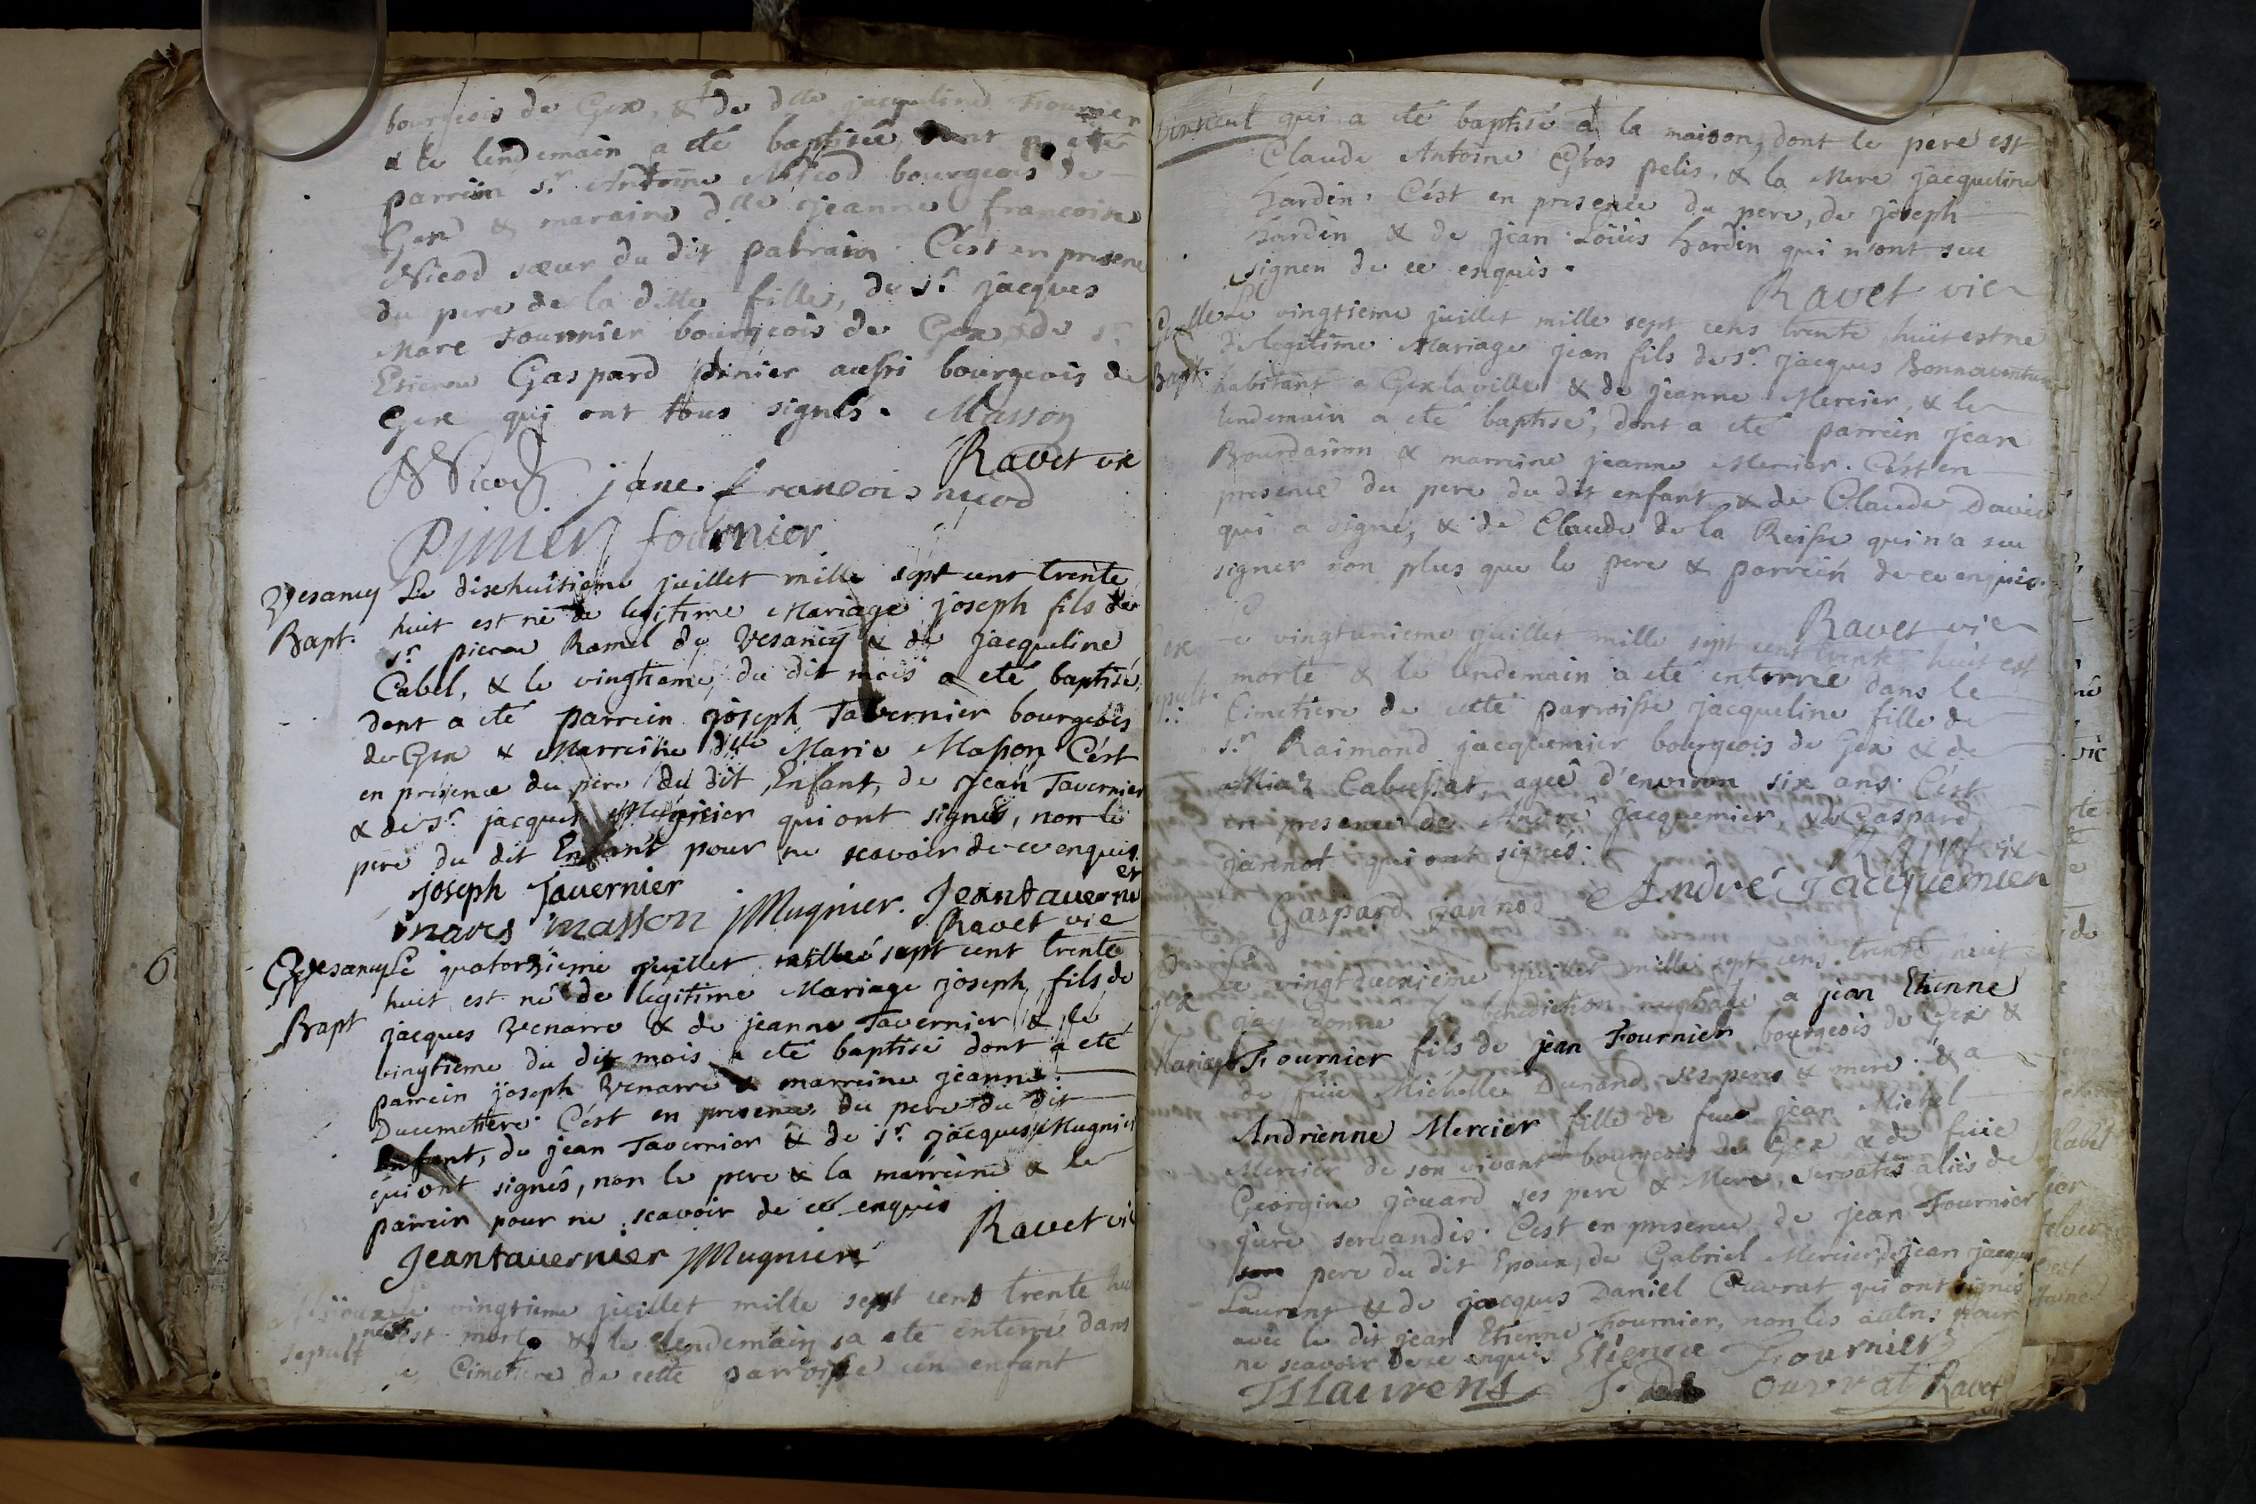 bourgeois de Gex, & de dlle jacqueline Fournier
& le lendemain a eté baptisée, dont a eté
parrein sr. Antoine Nicod bourgeois de
Gex & maraine dlle jeanne francoise
Nicod sœur du dit parrain. C'est en presence
du pere de la ditte fille, de sr. jacques
Marc fournier bourgeois de Gex & de sr.
Etienne Gaspard pinier aussi bourgeois de
Gex qui ont tous signés. Masson
Ravet vic
Nicod jane francois nicod
Pinier fournier
Vesancy Le dixehuitieme juillet mille sept cent trente
Bapt. huit est né de legitime Mariage joseph fils de
sr. pierre Ramel de Vesancy & de jacqueline
Cabel, & le vingtieme du dit mois a eté baptisé,
dont a eté parrein joseph Tavernier bourgeois
de Gex & Marreine dlle Marie Masson, C'est
en presence du pere du dit Enfant, de Jean Tavernier
& de sr. jacques Mugnier qui ont signés, non le
pere du dit Enfant pour ne scavoir de ce enquis
joseph Tavernier
mares masson jMugnier. Jeantavernier
Ravet vic
Vesancy Le quatorzieme juillet mille sept cent trente
huit est né de legitime Mariage joseph, fils de
Bapt jacques Venarre & de jeanne Tavernier & le
vingtieme du dit mois a eté baptisé dont a eté
parrein joseph Venarre & marreine jeanne
Ducemetiere. C'est en presence du pere du dit
Enfant, de jean Tavernier & de sr. jacques Mugnier
qui ont signés, non le pere & la marreine & le
parrein pour ne scavoir de ce enquis
Ravet vic
Jeantavernier jMugnier
Le vingtieme juillet mille sept cent trente huit
sepult est mort & le lendemain a eté enterré dans
le Cimetiere de cette parroisse un enfant
qui a eté baptisé a la maison, dont le pere est
Claude Antoine Gros pelis, & la Mere jacqueline
hardin. C'est en presence du pere, de joseph
hardin & de jean Loüis hardin qui n'ont sceu
signer de ce enquis.
Ravet vic
Le vingtieme juillet mille sept cens trente huit est né
de legitime Mariage jean fils de sr. jacques Bonnaventure
Bapt. habitant a Gex la ville & de jeanne Mercier, & le
lendemain a eté baptisé, dont a eté parrein jean
Bourdairon & marreine jeanne Mercier. C'est en
presence du pere du dit enfant & de Claude David
qui a signé, & de Claude de la Reisse qui n'a sceu
signer non plus que le pere & parrein de ce enquis.
Ravet vic
vingtunieme juillet mille sept cent trente huit est
morte & le lendemain a eté enterrée dans le
Cimetiere de cette parroisse jacqueline fille de
sr. Raimond jacquemier bourgeois de Gex & de
Cabussat, ageé d'environ six ans. C'est
en presence de André jacquemier, & de Gaspard
jannot qui ont signés.
Gaspard jannod André Jacquemier
Le vingtdeuxieme juillet mille sept cens trente huit
Gex jay donné la benediction nuptiale a jean Etienne
Mariage Fournier fils de jean Fournier bourgeois de Gex &
de fuüe Michelle Dunand ses pere & mere. & a
Andrienne Mercier fille de feu jean Michel
Mercier de son vivant bourgeois de Gex & de fuüe
Georgine jouard ses pere & Mere, servatis aliis de
jure servandis. C'est en presence de jean Fournier
pere du dit Epoux, de Gabriel Mercier, de jean jacques
Laurent & de jacques Daniel Ouvrat qui ont signés
avec le dit jean Etienne Fournier, non les autres pour
ne scavoir de ce enquis Etienne Fournier
JJlaurens J. D. ouvrat Ravet